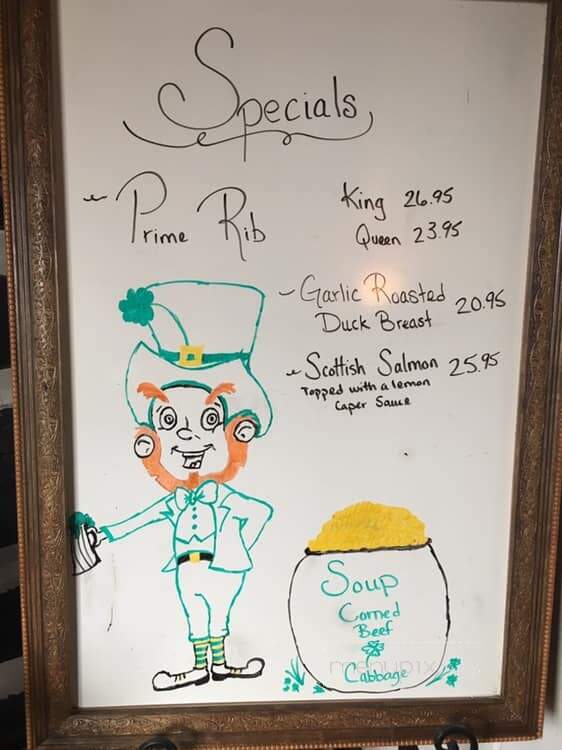 Specials
~ Prime Rib King 26.95
Queen 23.95
~ Garlic Roasted
Duck Breast 20.95
~ Scottish Salmon 25.95
Topped with a lemon
Caper Sauce
Soup
Corned
Beef
Cabbage
menupix